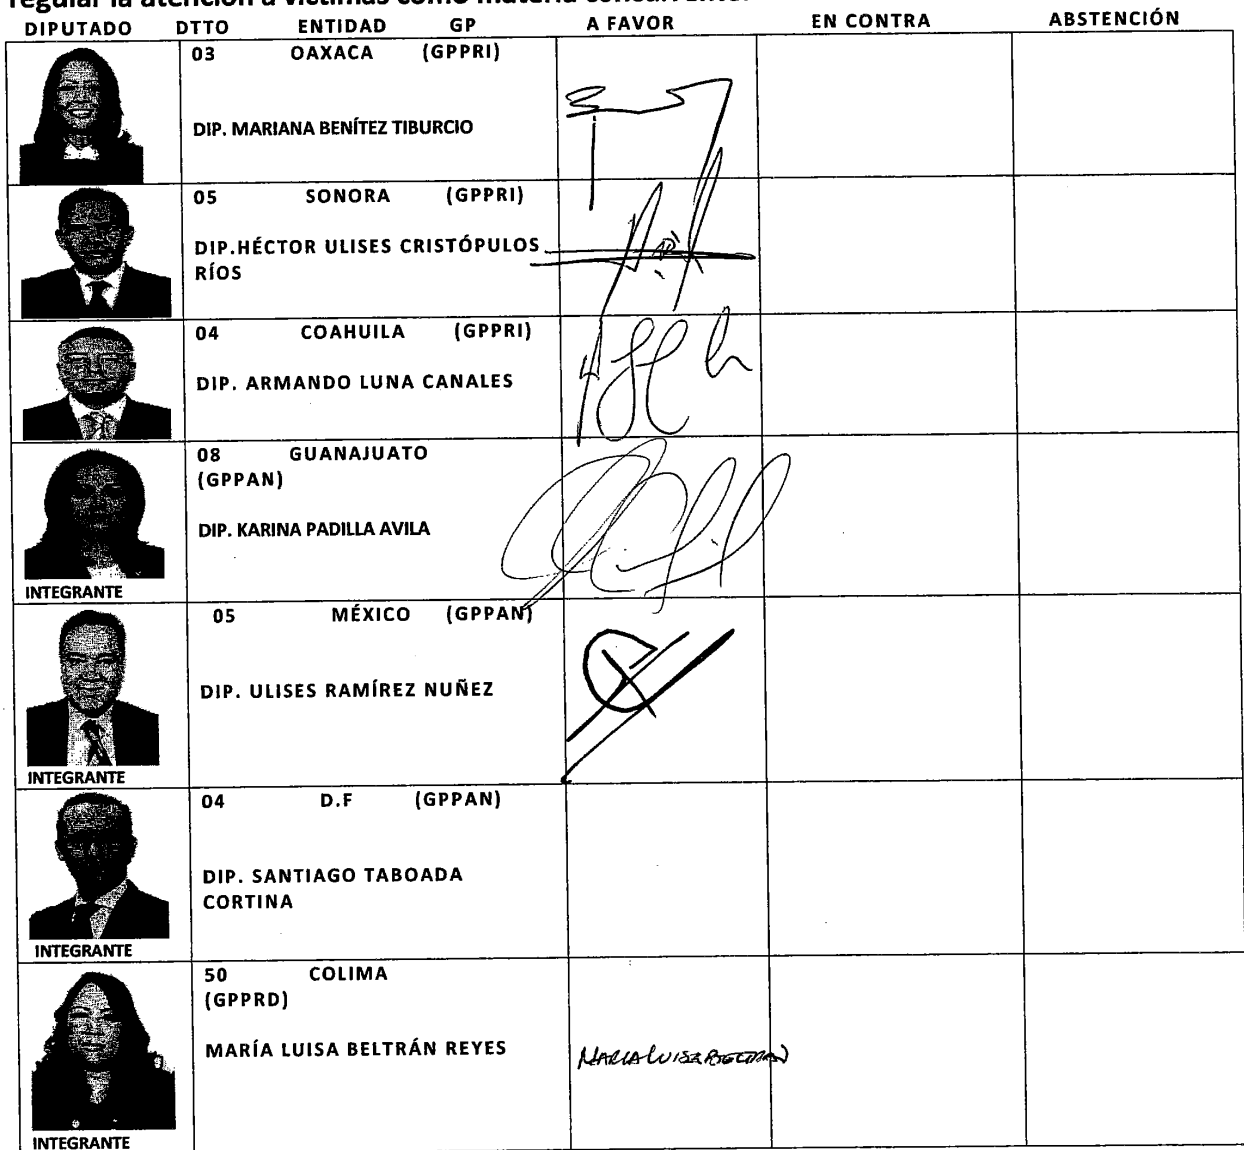 regular la atención a víctimas como materia concurrente.
DIPUTADO DTTO ENTIDAD GP A FAVOR EN CONTRA ABSTENCIÓN
03 OAXACA (GPPRI)
DIP. MARIANA BENÍTEZ TIBURCIO
05 SONORA (GPPRI)
DIP.HÉCTOR ULISES CRISTÓPULOS
RÍOS
04 COAHUILA (GPPRI)
DIP. ARMANDO LUNA CANALES
08 GUANAJUATO
(GPPAN)
DIP. KARINA PADILLA AVILA
INTEGRANTE
05 MÉXICO (GPPAN)
DIP. ULISES RAMÍREZ NUÑEZ
INTEGRANTE
04 D.F (GPPAN)
DIP. SANTIAGO TABOADA
CORTINA
INTEGRANTE
50 COLIMA
(GPPRD)
MARÍA LUISA BELTRÁN REYES MARIA LUISA BELTRAN
INTEGRANTE